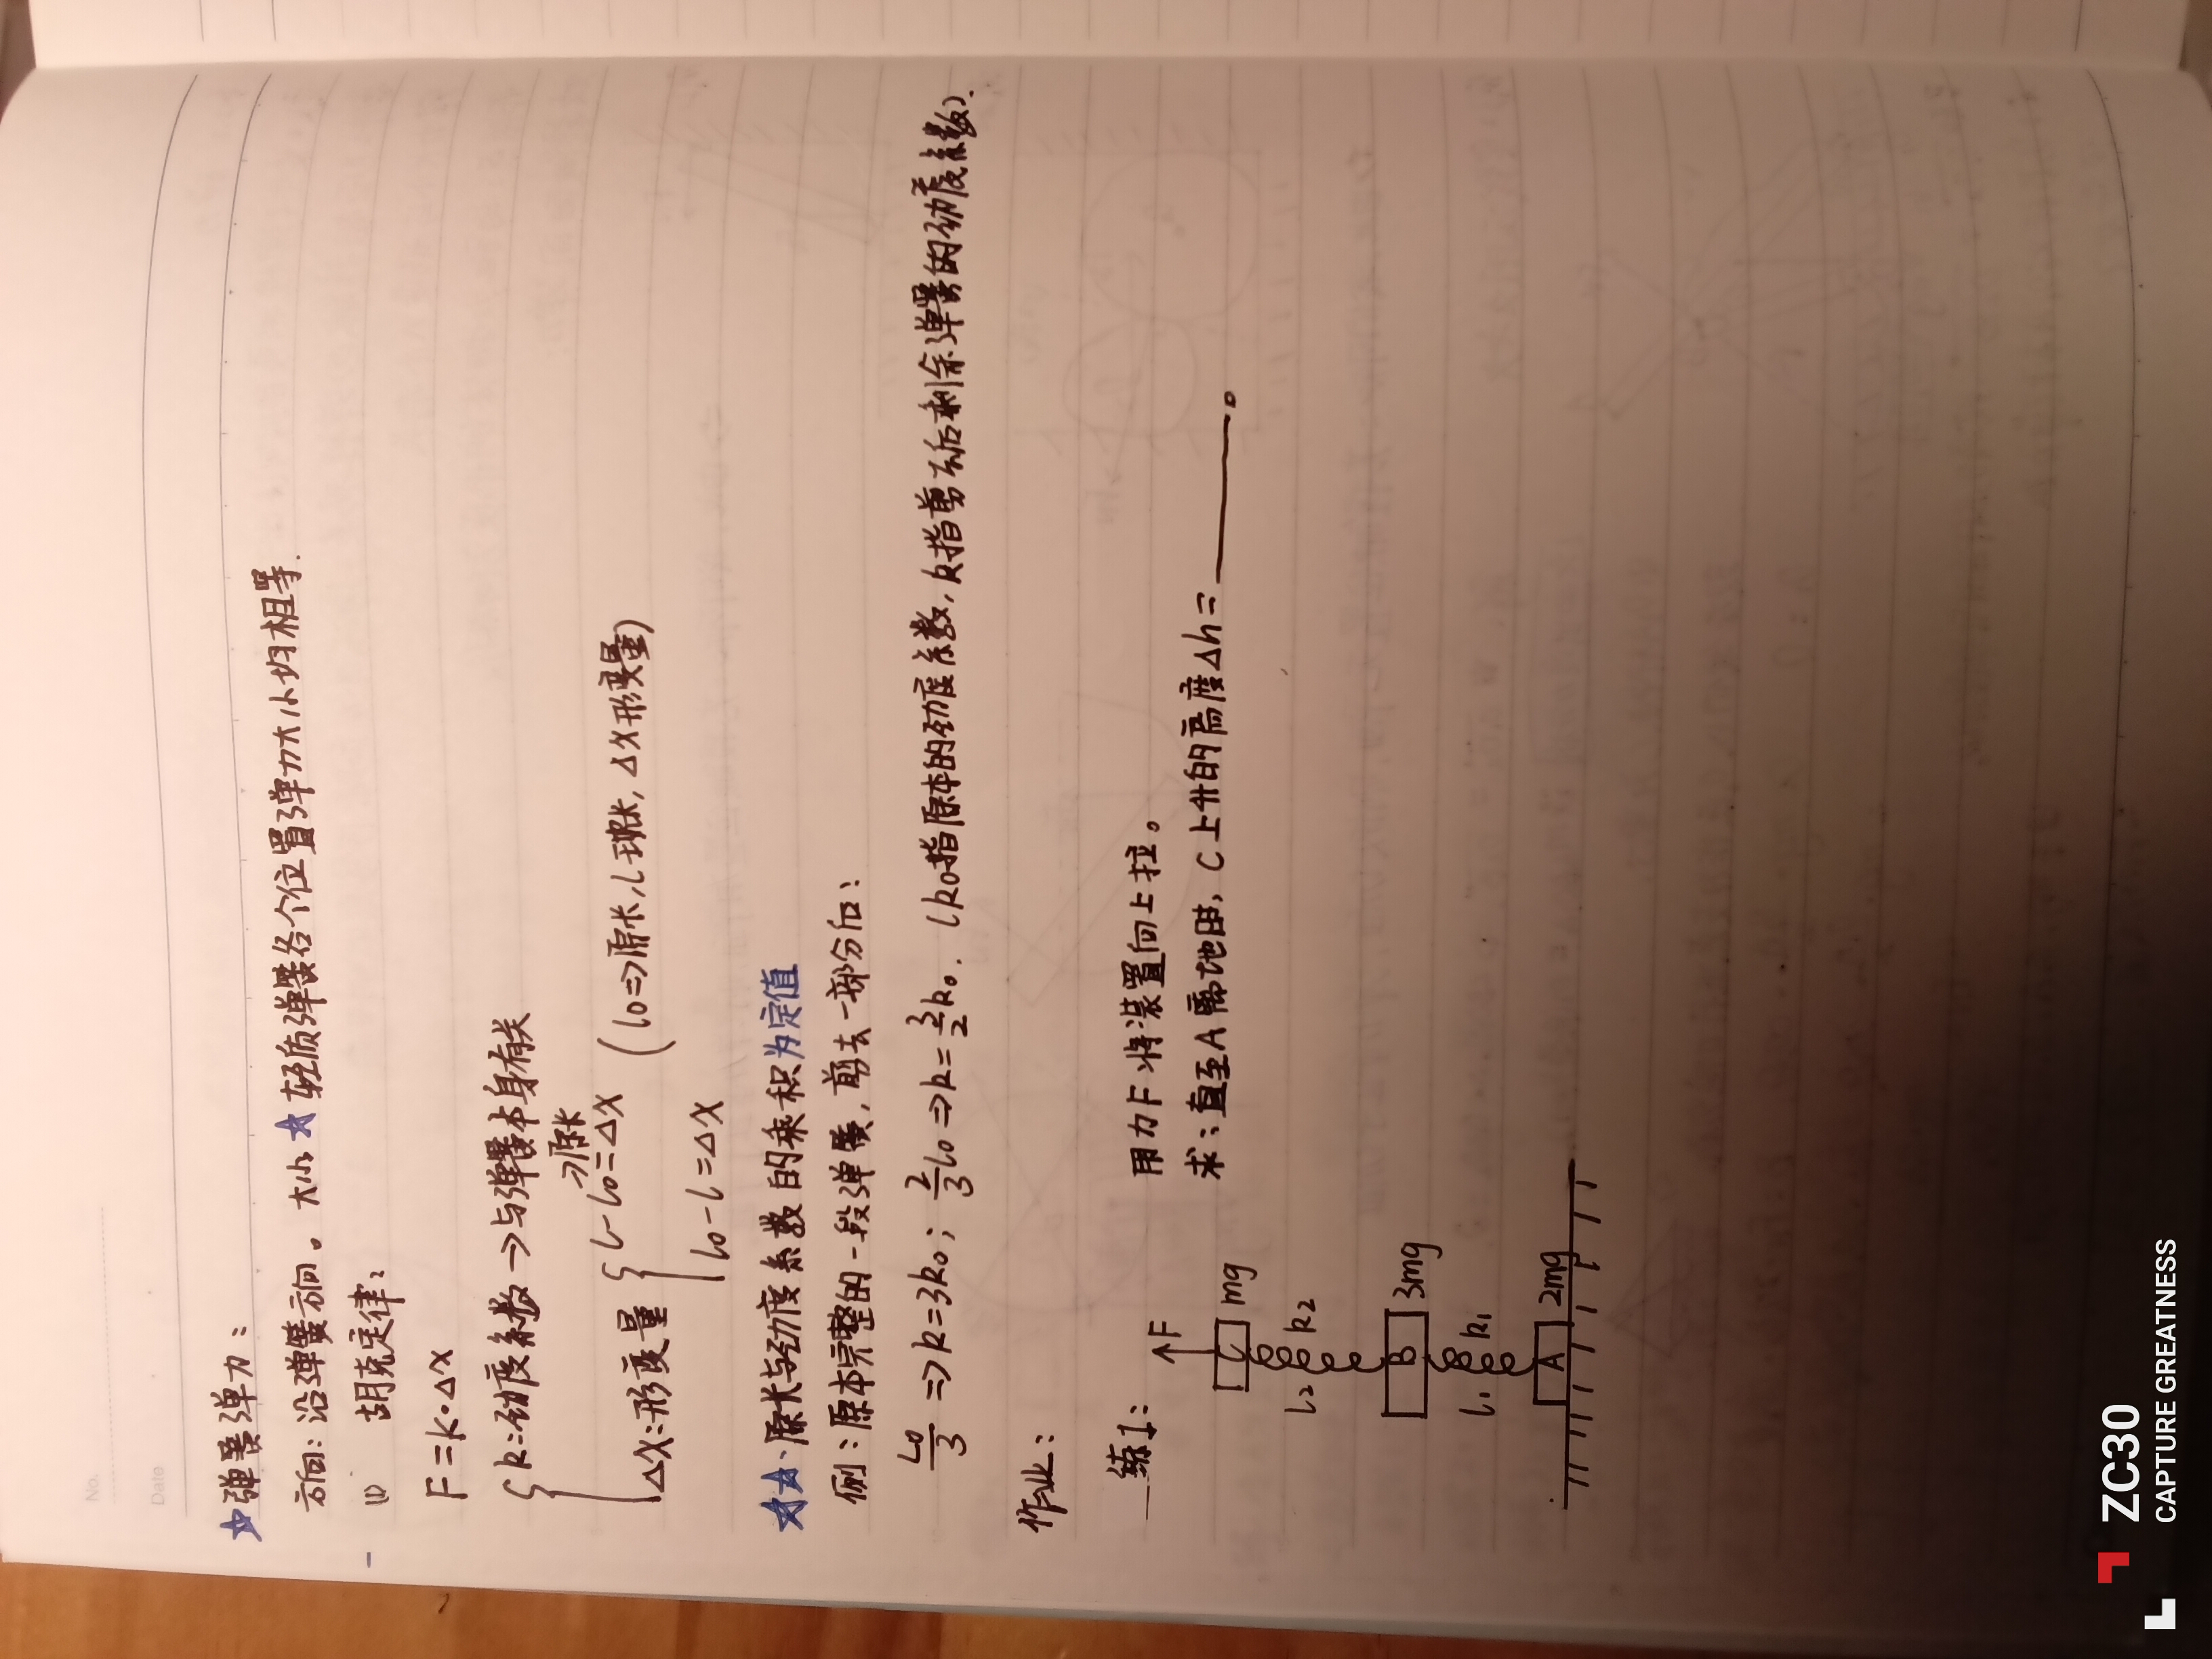 No.
Date
☆弹簧弹力:
方向:沿弹簧方向。大小☆轻质弹簧各个位置弹力大小均相等.
(1) 胡克定律:
F=k·Δx
k:劲度系数→与弹簧本身有关
Δx:形变量 { l-l0=Δx (l0⇒原长,l现长,Δx形变量)
→原长
l0-l=Δx
☆☆:原长与劲度系数的乘积为定值
例:原本完整的一段弹簧,剪去一部分后:
l0/3 ⇒k=3k0; 2/3 l0⇒k=3/2 k0. (k0指原本的劲度系数,k指剪去后剩余弹簧的劲度系数).
作业:
练1: 用力F将装置向上拉。
求:直至A离地时,C上升的高度Δh=____。
F
C mg
l2 k2
B 3mg
l1 k1
A 2mg
ZC30
CAPTURE GREATNESS